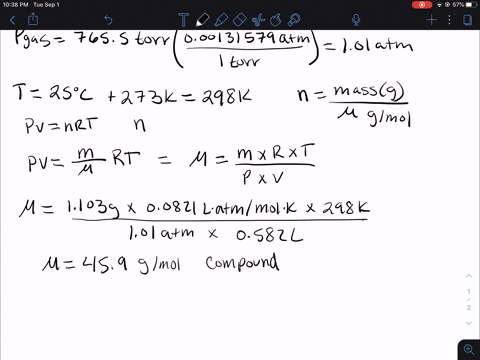 10:38 PM Tue Sep 1
57%
Pgas = 765.5 torr (0.00131579 atm / 1 torr) = 1.01 atm
T = 25°C + 273K = 298K n = mass(g) / μ g/mol
PV = nRT n
PV = m/μ RT = μ = m x R x T / P x V
μ = 1.103g x 0.0821 L·atm/mol·K x 298K / 1.01 atm x 0.582 L
μ = 45.9 g/mol compound
1
2